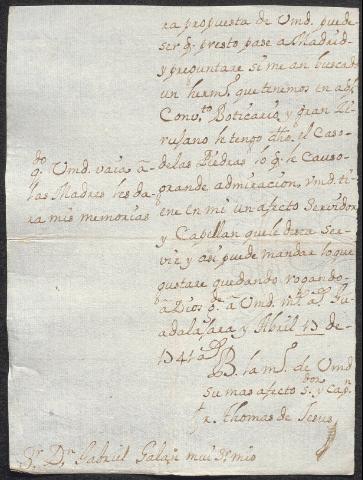 ra propuesta de Vmd. puede
ser q. presto pase a Madrid
y preguntare si me an buscad
un herm.o que tenemos en aql
Conv.to Boticario y gran Ci-
rujano le tengo dho. el Caso
de las Piedras lo q. le Causo
grande admiracion, vmd. ti-
ene en mi un afecto Servidor
y Capellan que le desea Ser-
vir y asi puede mandar lo que
gustare quedando rogando
a Dios g.e a Vmd. m.s a.s Gu-
adalajara y Abril 13 de
1741 a.s
B. la m.o de Vmd
su mas afecto s.dor y cap.n
fr. Thomas de Jesus
q.do Vmd. vaias à
las Madres les da-
ra mis memorias
S.r D.n Gabriel Galan mui s.r mio